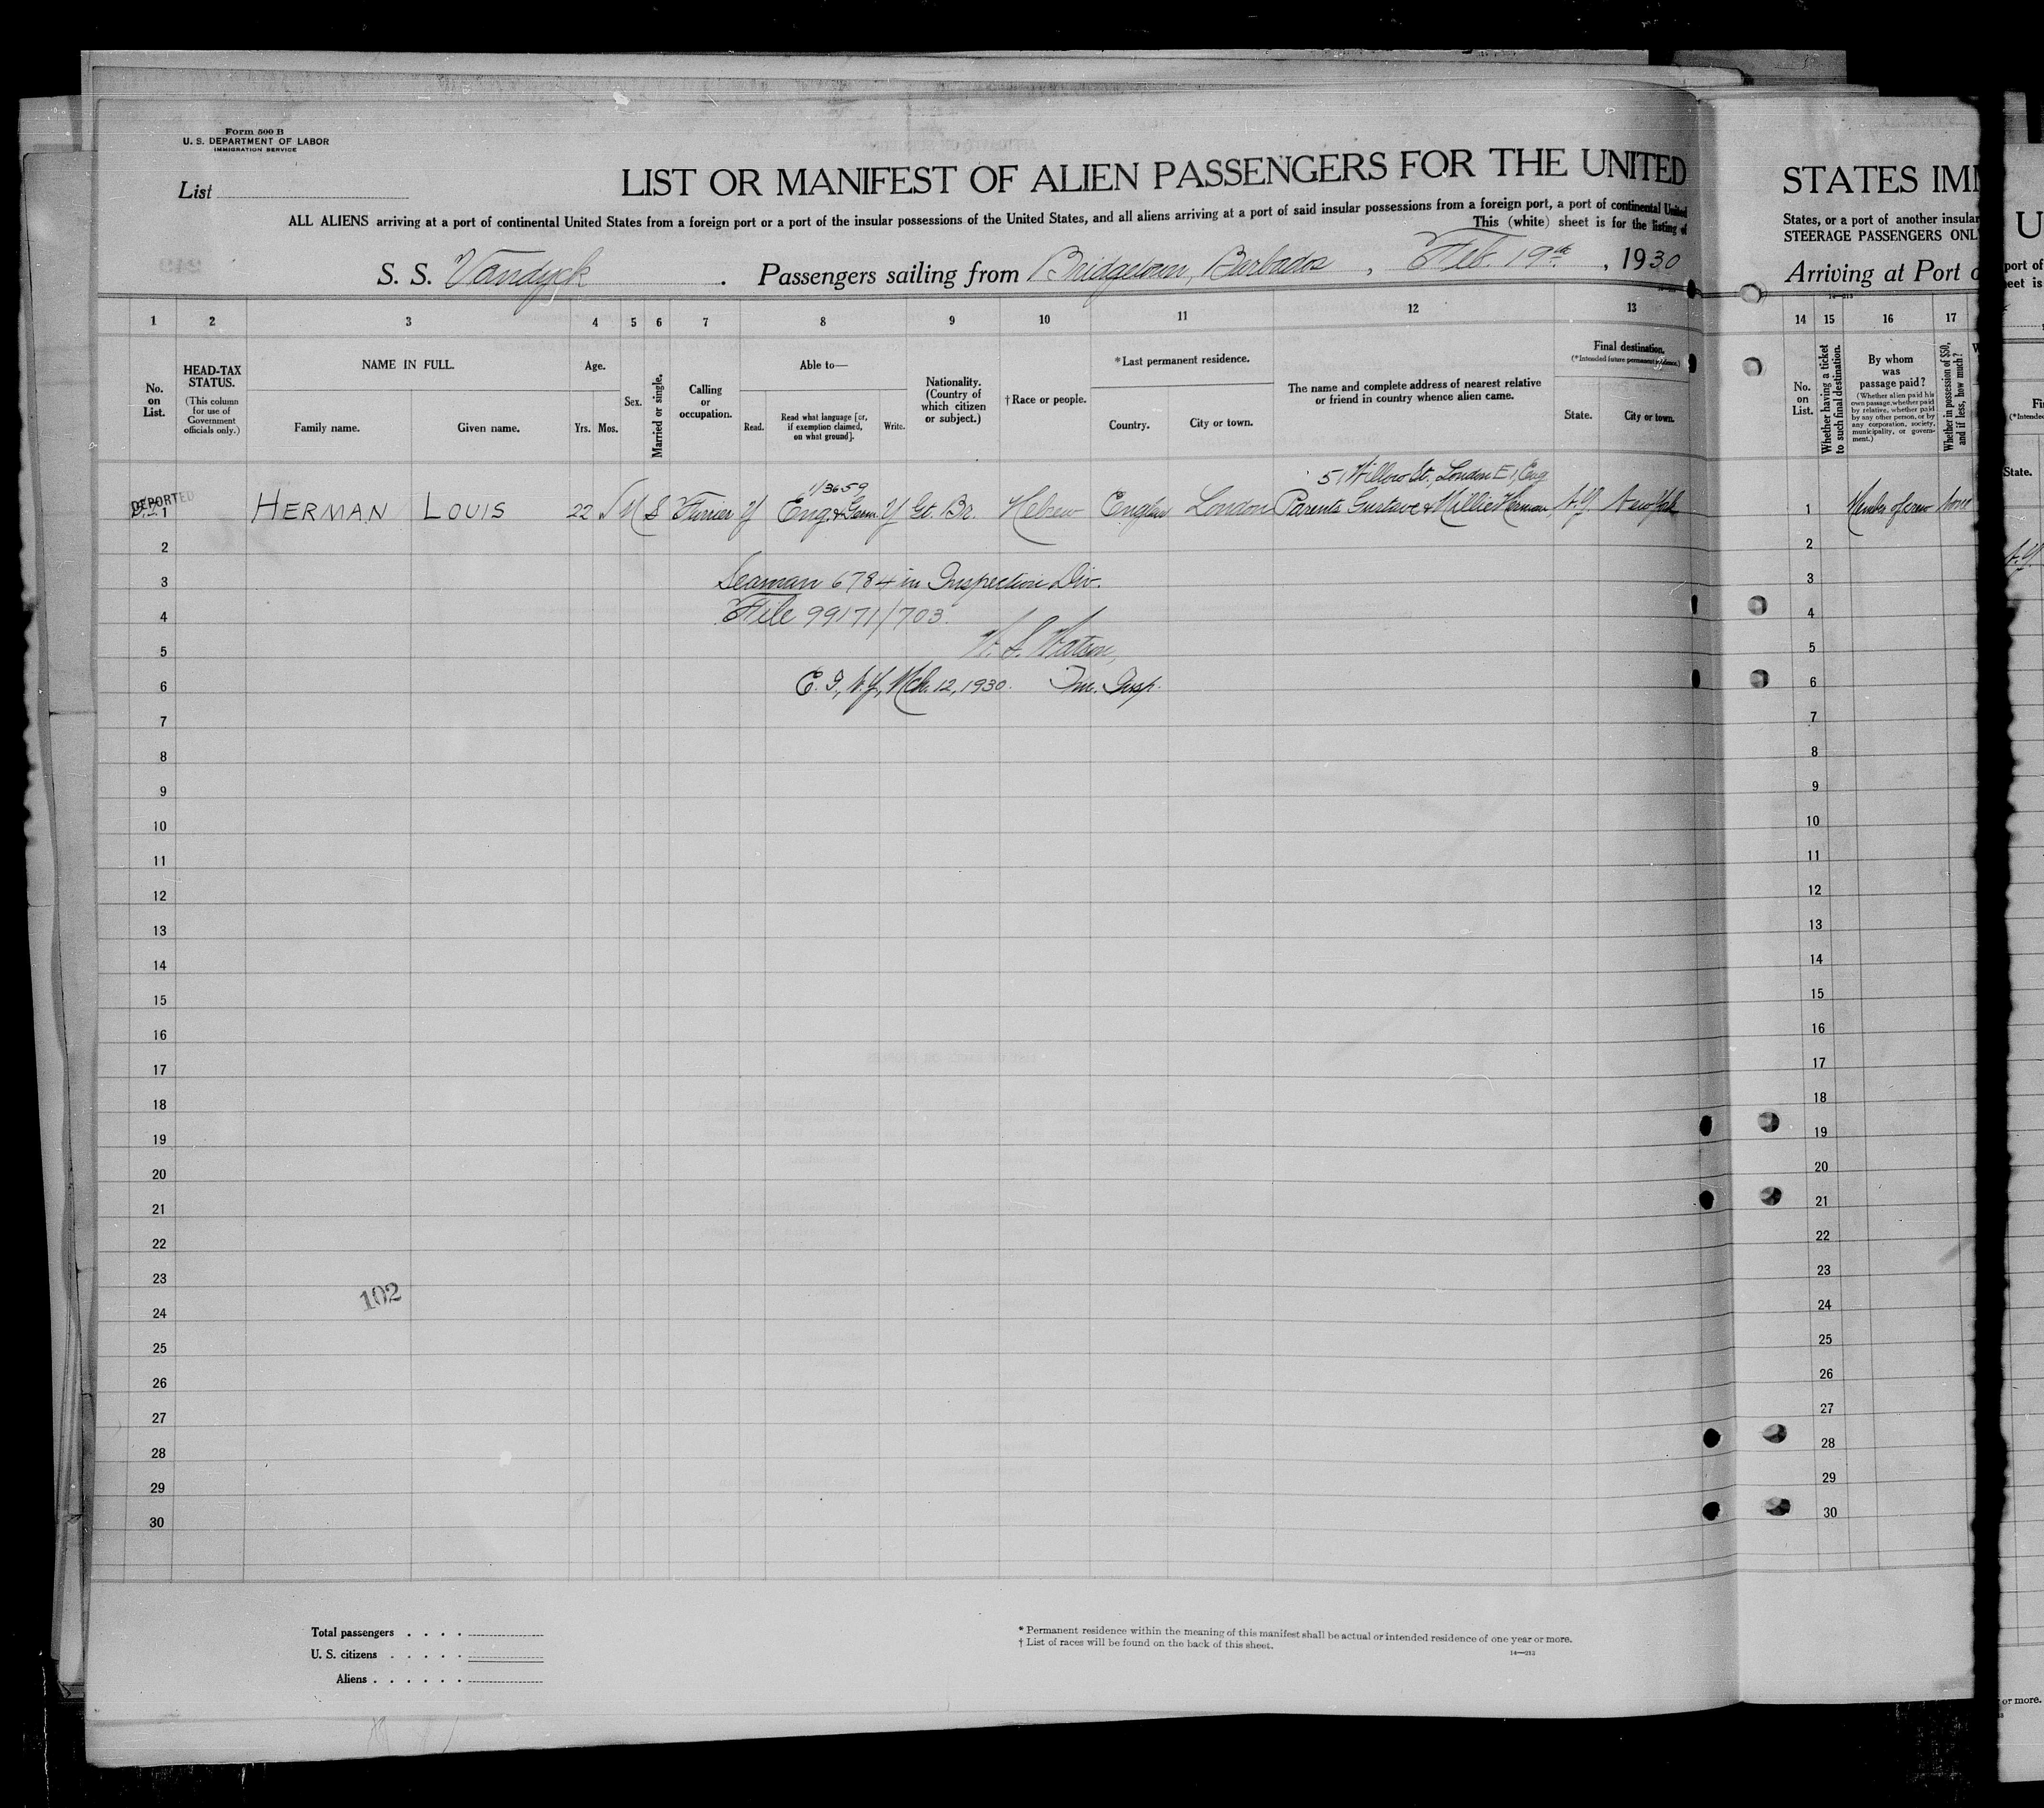 Form 500 B
U. S. DEPARTMENT OF LABOR
IMMIGRATION SERVICE
List
LIST OR MANIFEST OF ALIEN PASSENGERS FOR THE UNITED
ALL ALIENS arriving at a port of continental United States from a foreign port or a port of the insular possessions of the United States, and all aliens arriving at a port of said insular possessions from a foreign port, a port of continental United
This (white) sheet is for the listing of
S. S. Vandyck . Passengers sailing from Bridgetown, Barbados , Feb. 19th , 1930
1 2 3 4 5 6 7 8 9 10 11 12 13
No. on List.
HEAD-TAX STATUS.
(This column for use of Government officials only.)
NAME IN FULL.
Family name. Given name.
Age.
Yrs. Mos.
Sex.
Married or single.
Calling or occupation.
Able to—
Read. Read what language [or, if exemption claimed, on what ground]. Write.
Nationality. (Country of which citizen or subject.)
†Race or people.
*Last permanent residence.
Country. City or town.
The name and complete address of nearest relative or friend in country whence alien came.
Final destination.
(*Intended future permanent residence.)
State. City or town.
1/3659
51 Willow St., London E1, Eng
DEPORTED
1 HERMAN LOUIS 22 M S Furrier Y Eng. & Germ. Y Gt. Br. Hebrew England London Parents Gustave & Millie Herman N.Y. New York
2
3 Seaman 6784 in Inspection Div.
4 File 99171/703.
5 W. S. Watson,
6 E. I., N.Y., Mch. 12, 1930. Im. Insp.
7
8
9
10
11
12
13
14
15
16
17
18
19
20
21
22
23
102
24
25
26
27
28
29
30
Total passengers . . . .
U. S. citizens . . . . .
Aliens . . . . . .
* Permanent residence within the meaning of this manifest shall be actual or intended residence of one year or more.
† List of races will be found on the back of this sheet.
14—213
STATES IMM
States, or a port of another insular
STEERAGE PASSENGERS ONL
Arriving at Port o
14—213
14 15 16 17
No. on List.
Whether having a ticket to such final destination.
By whom was passage paid?
(Whether alien paid his own passage, whether paid by relative, whether paid by any other person, or by any corporation, society, municipality, or government.)
Whether in possession of $50, and if less, how much?
1 Member of crew None
2
3
4
5
6
7
8
9
10
11
12
13
14
15
16
17
18
19
20
21
22
23
24
25
26
27
28
29
30
U
port of
eet is
Fi
(*Intende
State.
N.Y.
or more.